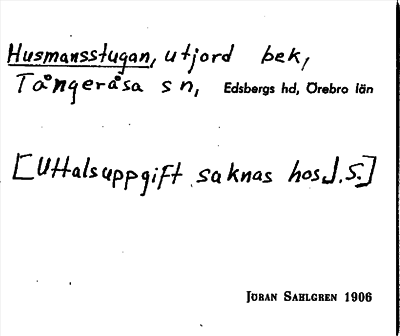 Husmansstugan, utjord bek,
Tångeråsa sn, Edsbergs hd, Örebro län
[Uttalsuppgift saknas hos J. S.]
JÖRAN SAHLGREN 1906